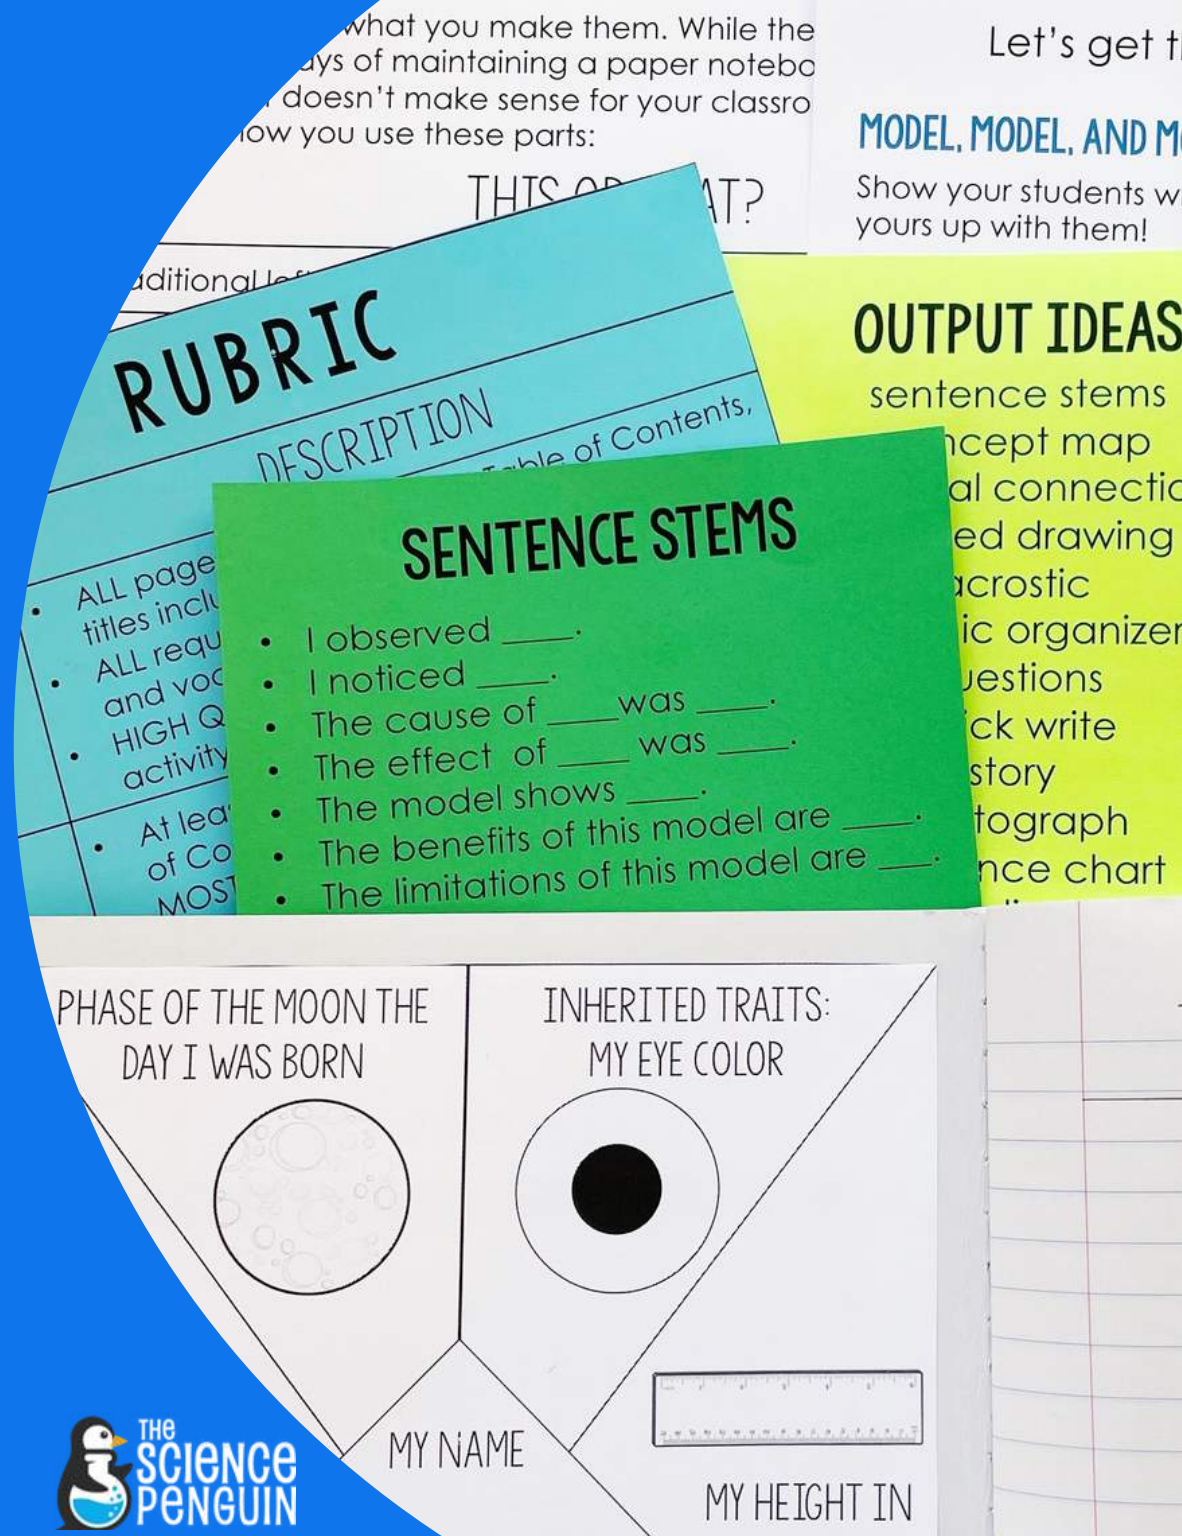 what you make them. While the
of maintaining a paper
doesn't make sense for your
you use these parts:
THIS
Let's get
MODEL, MODEL, AND
Show your students
yours up with them!
RUBRIC
DESCRIPTION
of Contents,
ALL
titles
ALL
and
HIGH
activity
At
of
MOST
OUTPUT IDEAS
sentence stems
map
drawing
acrostic
write
story
chart
SENTENCE STEMS
• I observed ____.
• I noticed ____.
• The cause of ____ was ____.
• The effect of ____ was ____.
• The model shows ____.
• The benefits of this model are ____.
• The limitations of this model are ____.
PHASE OF THE MOON THE
DAY I WAS BORN
INHERITED TRAITS:
MY EYE COLOR
MY NAME
MY HEIGHT IN
THE
SCIENCE
PENGUIN